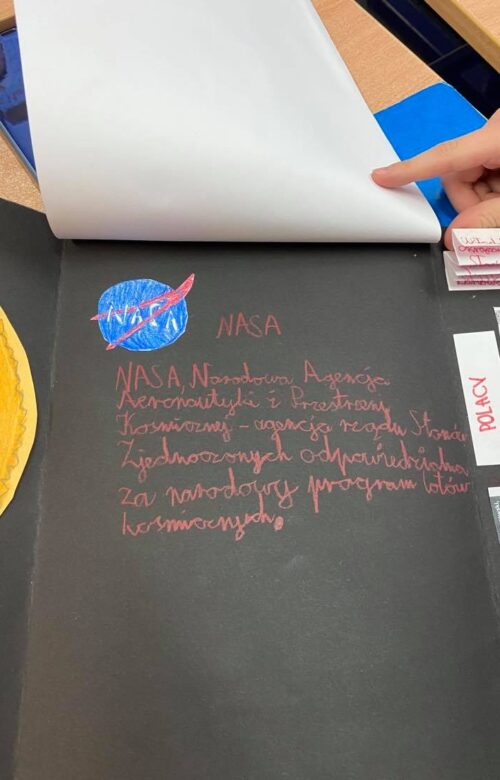 NASA
NASA
NASA, Narodowa Agencja
Aeronautyki i Przestrzeni
Kosmicznej - agencja rządu Stanów
Zjednoczonych odpowiedzialna
za narodowy program lotów
kosmicznych.
POLACY